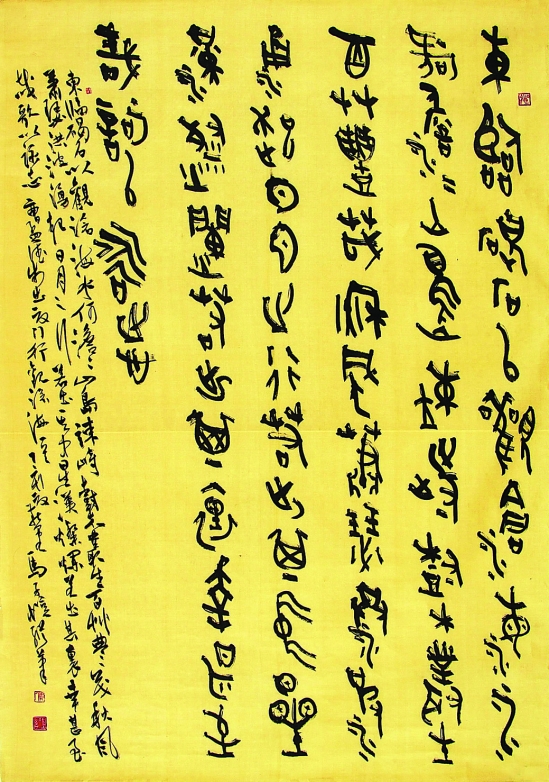 東臨碣石以觀滄海水
何澹〻山島竦峙樹木叢生
百艸豐茂秋風蕭瑟洪波
涌起日月之行若出其中星
漢燦爛若出其裏幸甚至
哉歌以詠志
東臨碣石以觀滄海水何澹〻山島竦峙樹木叢生百艸豐茂秋風
蕭瑟洪波湧起日月之行若出其中星漢燦爛若出其裏幸甚至
哉歌以詠志 曹孟德步出夏門行觀滄海 丁亥 馬子愷